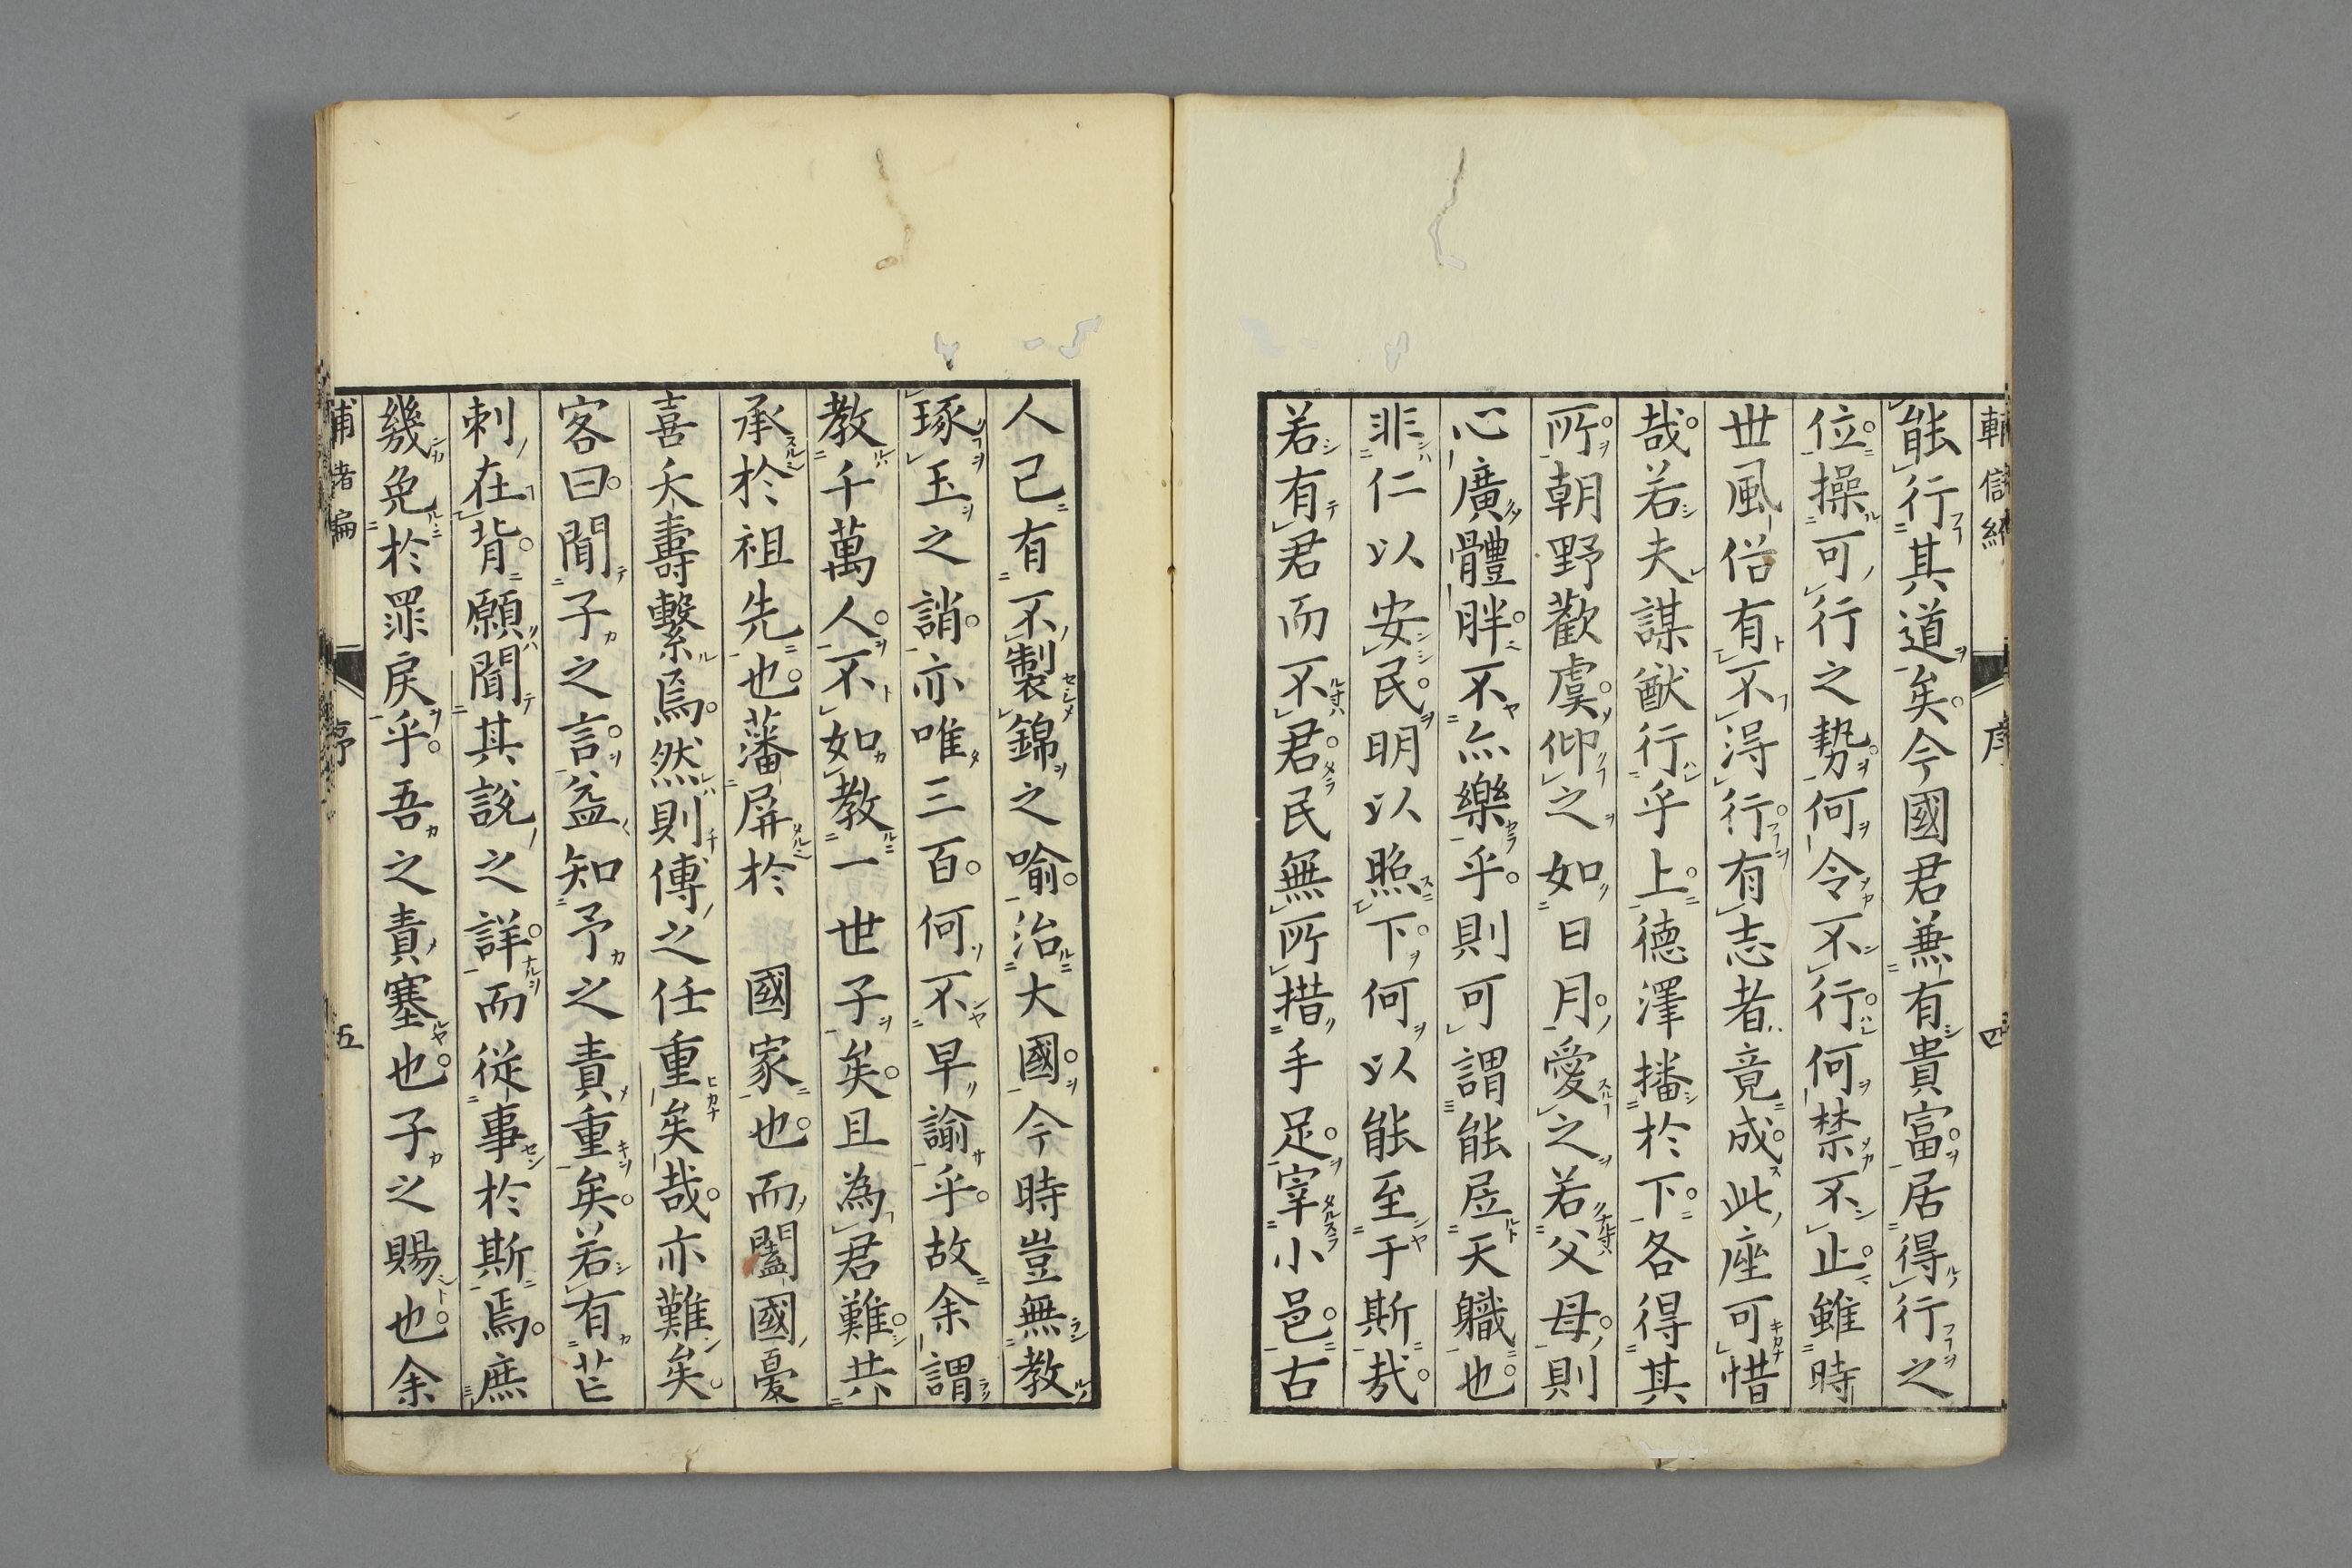 能行其道矣今國君兼有貴富居得行之
位操可行之勢何令不行何禁不止雖時
世風俗有不得行有志者竟成此座可惜
哉若夫謀猷行乎上德澤播於下各得其
所朝野歡虞仰之如日月愛之若父母則
心廣體胖不亦樂乎則可謂能居天職也
非仁以安民明以照下何以能至于斯哉
若有君而不君民無所措手足宰小邑古
人已有不製錦之喻治大國今時豈無教
琢玉之誚亦唯三百何不早諭乎故余謂
教千萬人不如教一世子矣且為君難共
承於祖先也藩屏於 國家也而闔國憂
喜夭壽繫焉然則傅之任重矣哉亦難矣
客曰聞子之言益知予之責重矣若有芒
刺在背願聞其說之詳而從事於斯焉庶
幾免於罪戾乎吾之責塞也子之賜也余
序
五